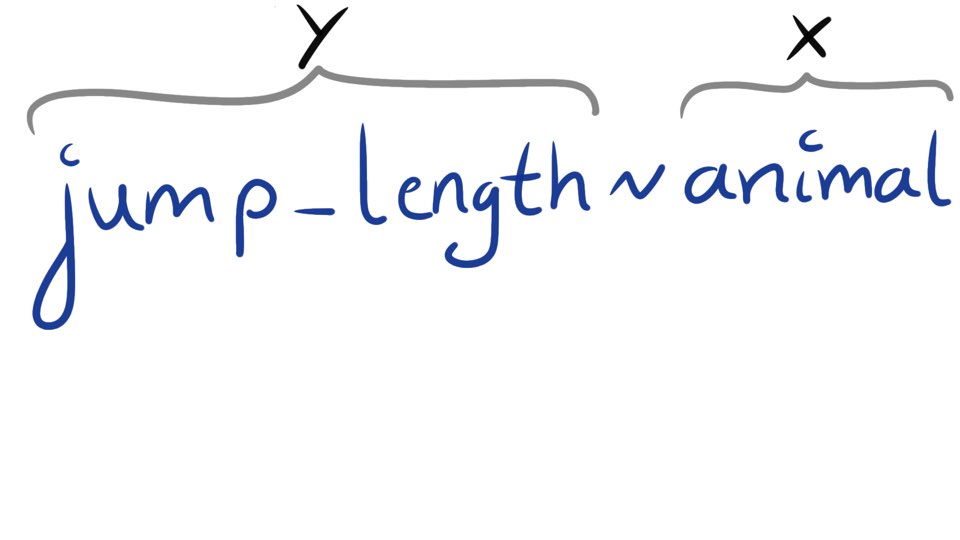 Y X
jump_length ~ animal